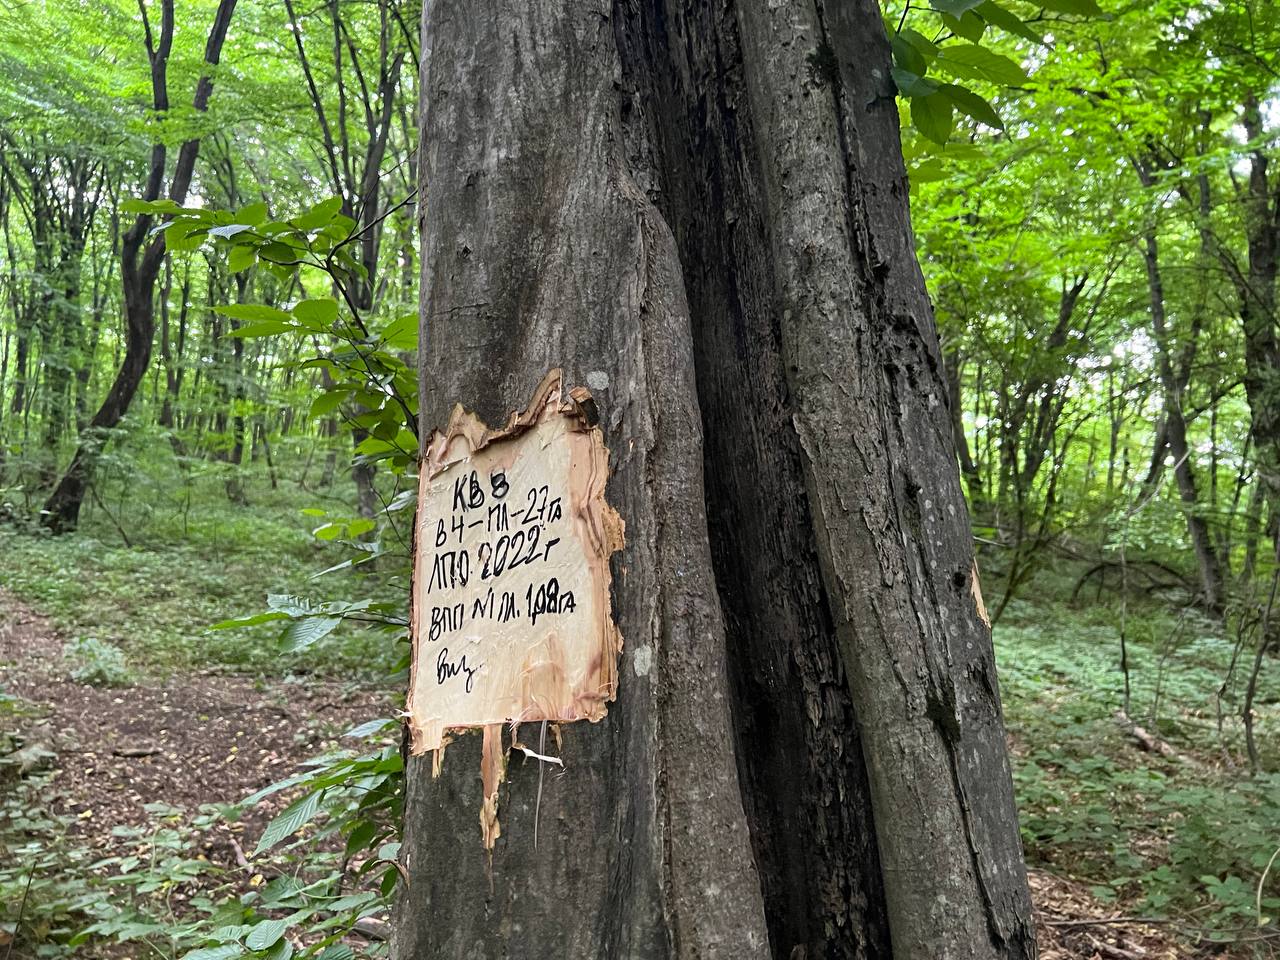 КВ 8
В 4-ПЛ-27ГА
ЛПО. 2022г
ВПП №1 ПЛ. 1,08га
Виз.